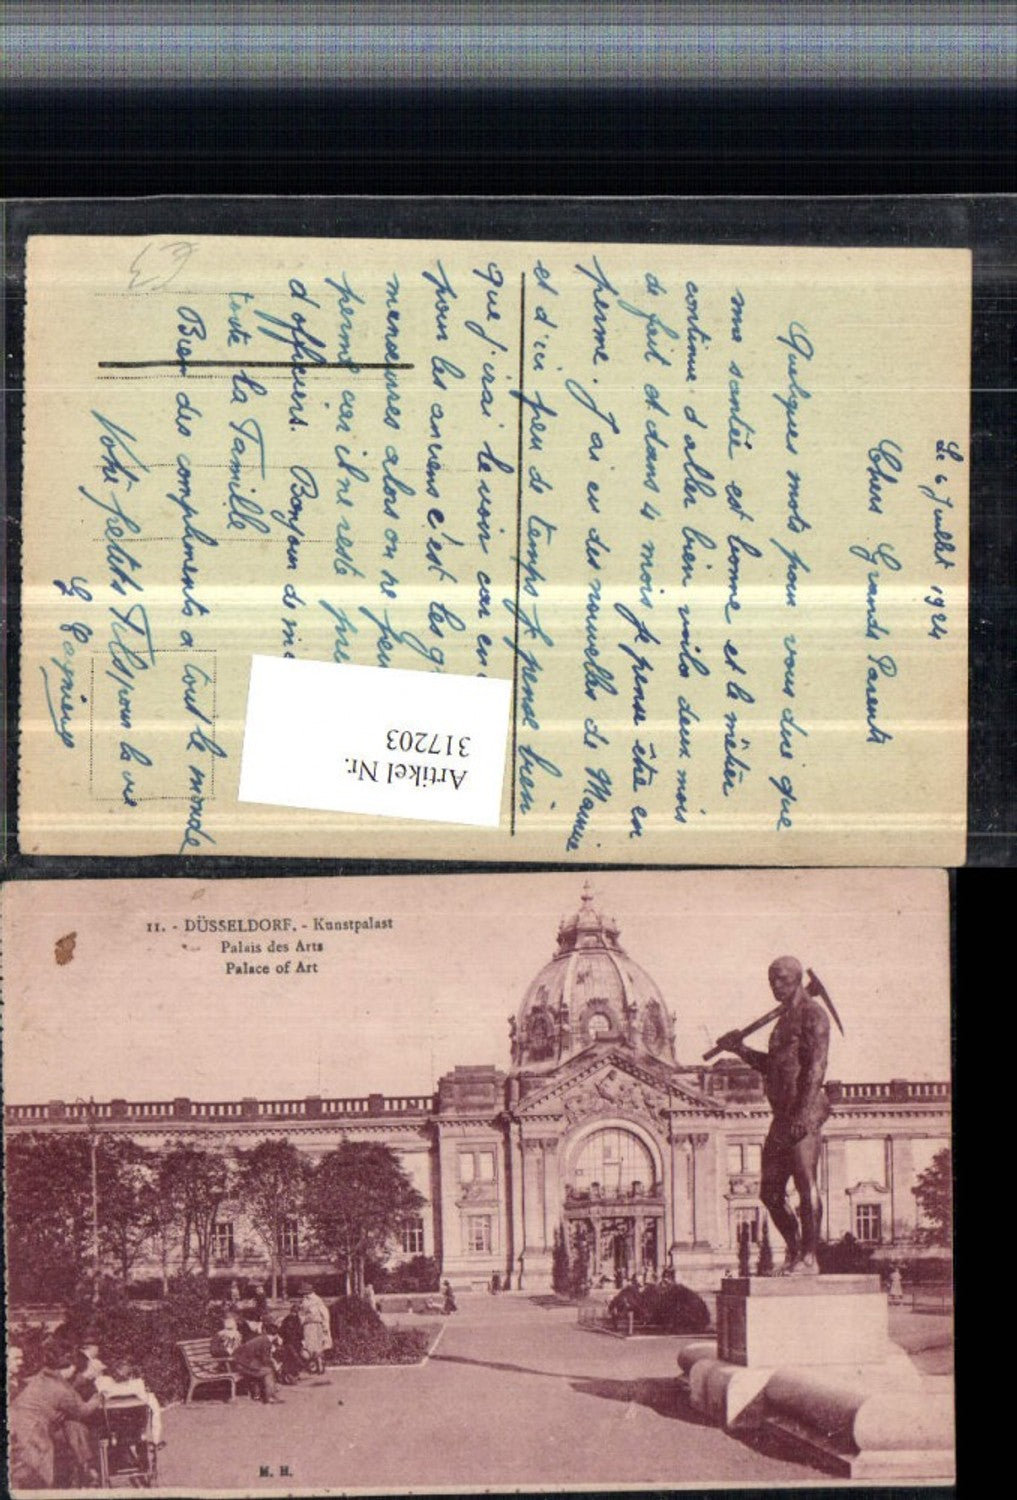 Le 6 Juillet 1924
Chers Grands Parents
Quelques mots pour vous dire que
ma santée est bonne et le métier
continue d'aller bien voila deux mois
de fait et dans 4 mois je pense être en
perme. J'ai eu des nouvelles de Maurice
et d'ici peu de temps je pense bien
que j'irai le voir car en
pour les anciens c'est les g
menoeuvres alors on ne peu
perme car il ne reste
d'officiers. Bonjour de m
toute la Famille
Bien des compliments a tout le monde
Votre petits Fils pour la vie
Artikel Nr.
317203
11. - DÜSSELDORF. - Kunstpalast
Palais des Arts
Palace of Art
M. H.